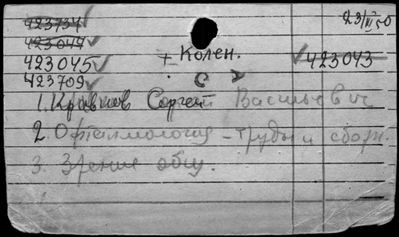 423734
23/IV 50
423047
+ Колен.
423045
423043
423709
1. Кравков Сергей Васильевич
2. Офталмология - труды и сборн.
3. Зрение общ.